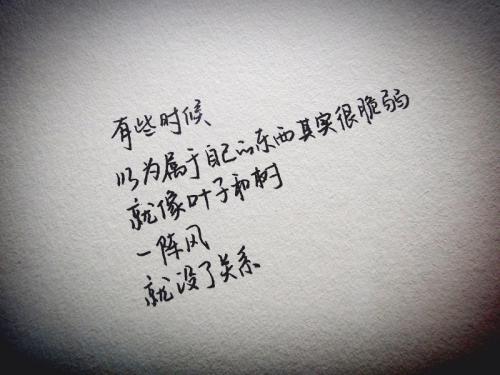 有些时候
以为属于自己的东西其实很脆弱
就像叶子和树
一阵风
就没了关系